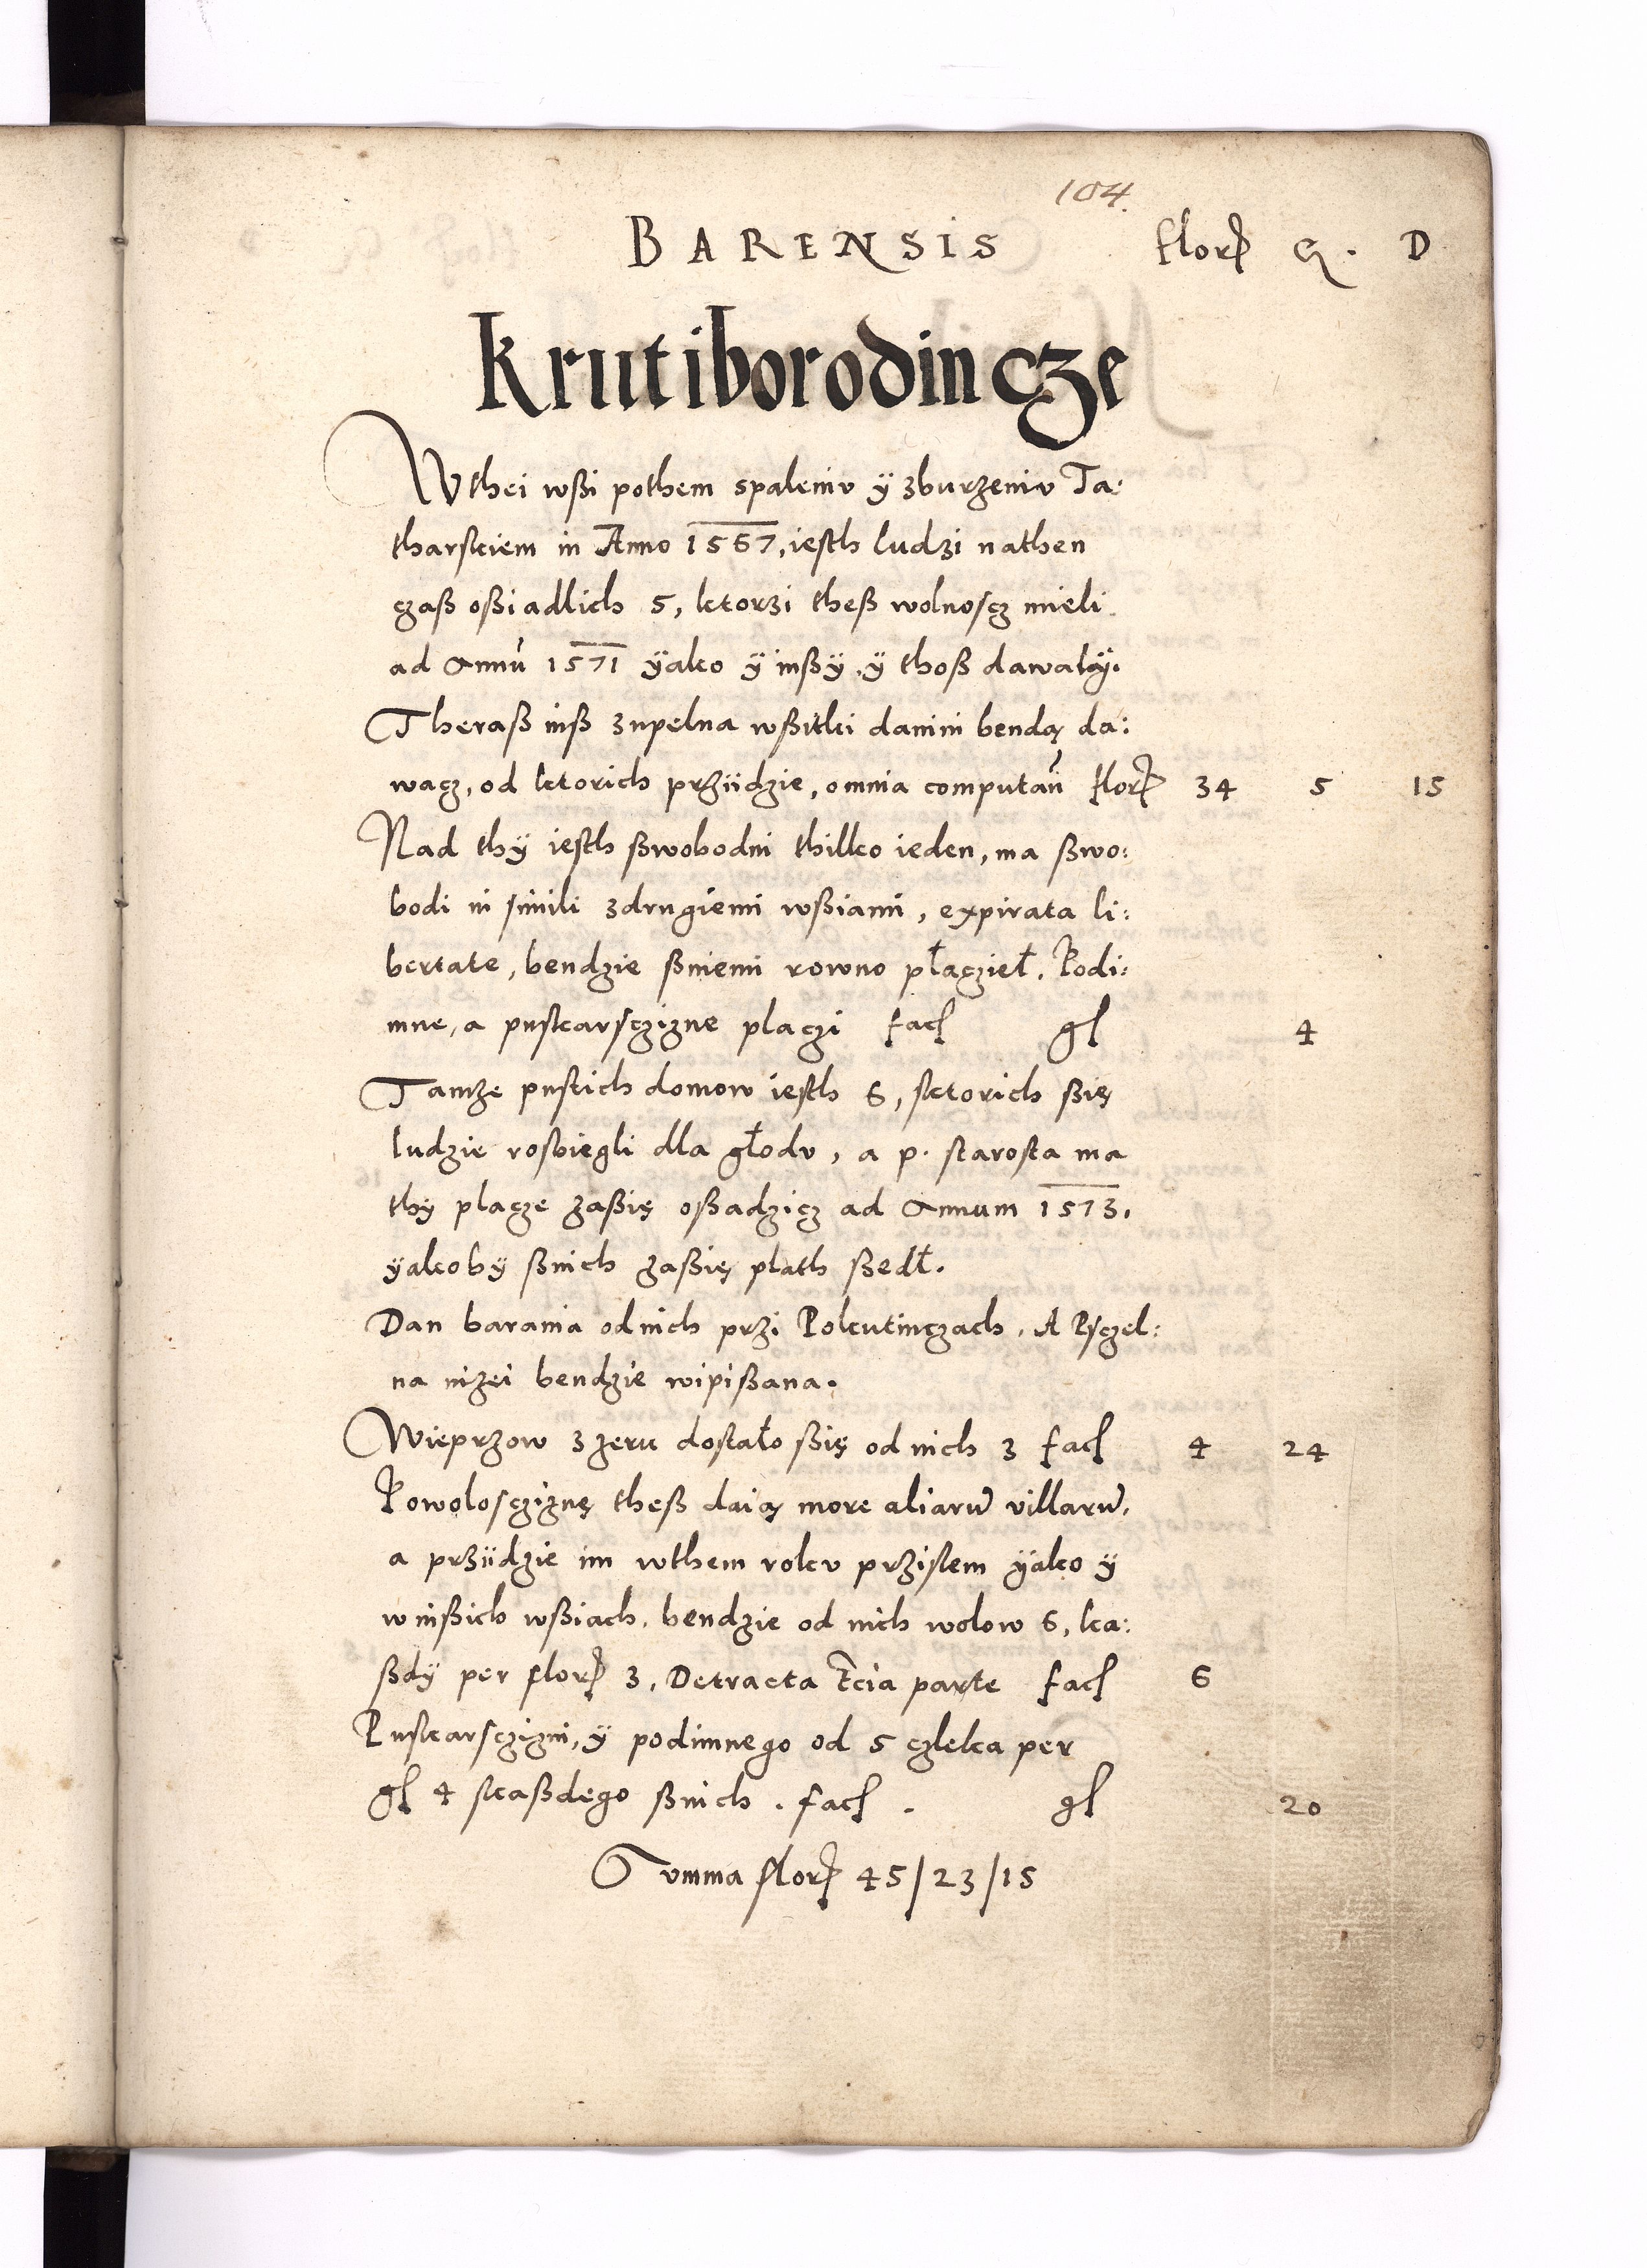 104.
BARENSIS florſ Gͬ. D
Krutiborodincze
Wthei wßi pothem spaleniv ÿ zburzeniv Ta:
tharskiem in Anno 1567, iesth ludzi nathen
czaß oßiadlich 5, ktorzi theß wolnoscz mieli
ad Annū 1571 ÿako ÿ inßÿ, ÿ thoß dawalÿ.
Theraß inß zupelna wßitki danini bendą da:
wacz, od ktorich prziidzie, omnia computań florſ 34 5 15
Nad thÿ iesth ßwobodni thilko ieden, ma ßwo:
bodi in simili zdrugiemi wßiami, expirata li:
bertate, bendzie ßniemi rowno płaczieł. Podi:
mne, a puskarsczizne placzi facſ gſ 4
Tamze pustich domow iesth 6, sktorich ßię
ludzie rosbiegli dla głodv, a p. starosta ma
thÿ placze zaßię oßadzicz ad Annum 1573,
ÿakobÿ ßnich zaßię plath ßedł.
Dan barania odnich przi Polkutinczach, A Psczel:
na nizei bendzie wipißana.
Wieprzow z zeru dostało ßię od nich 3 facſ 4 24
Powoloscziznę theß daią more aliarū villarū,
a prziidzie im wthem rokv przislem ÿako ÿ
winßich wßiach, bendzie od nich wolow 6, ka:
ßdÿ per florſ 3, Detracta t̄cia parte facſ 6
Puskarsczizni, ÿ podimnego od 5 czleka per
gſ 4 skaßdego ßnich. facſ. gſ 20
Summa florſ 45/23/15